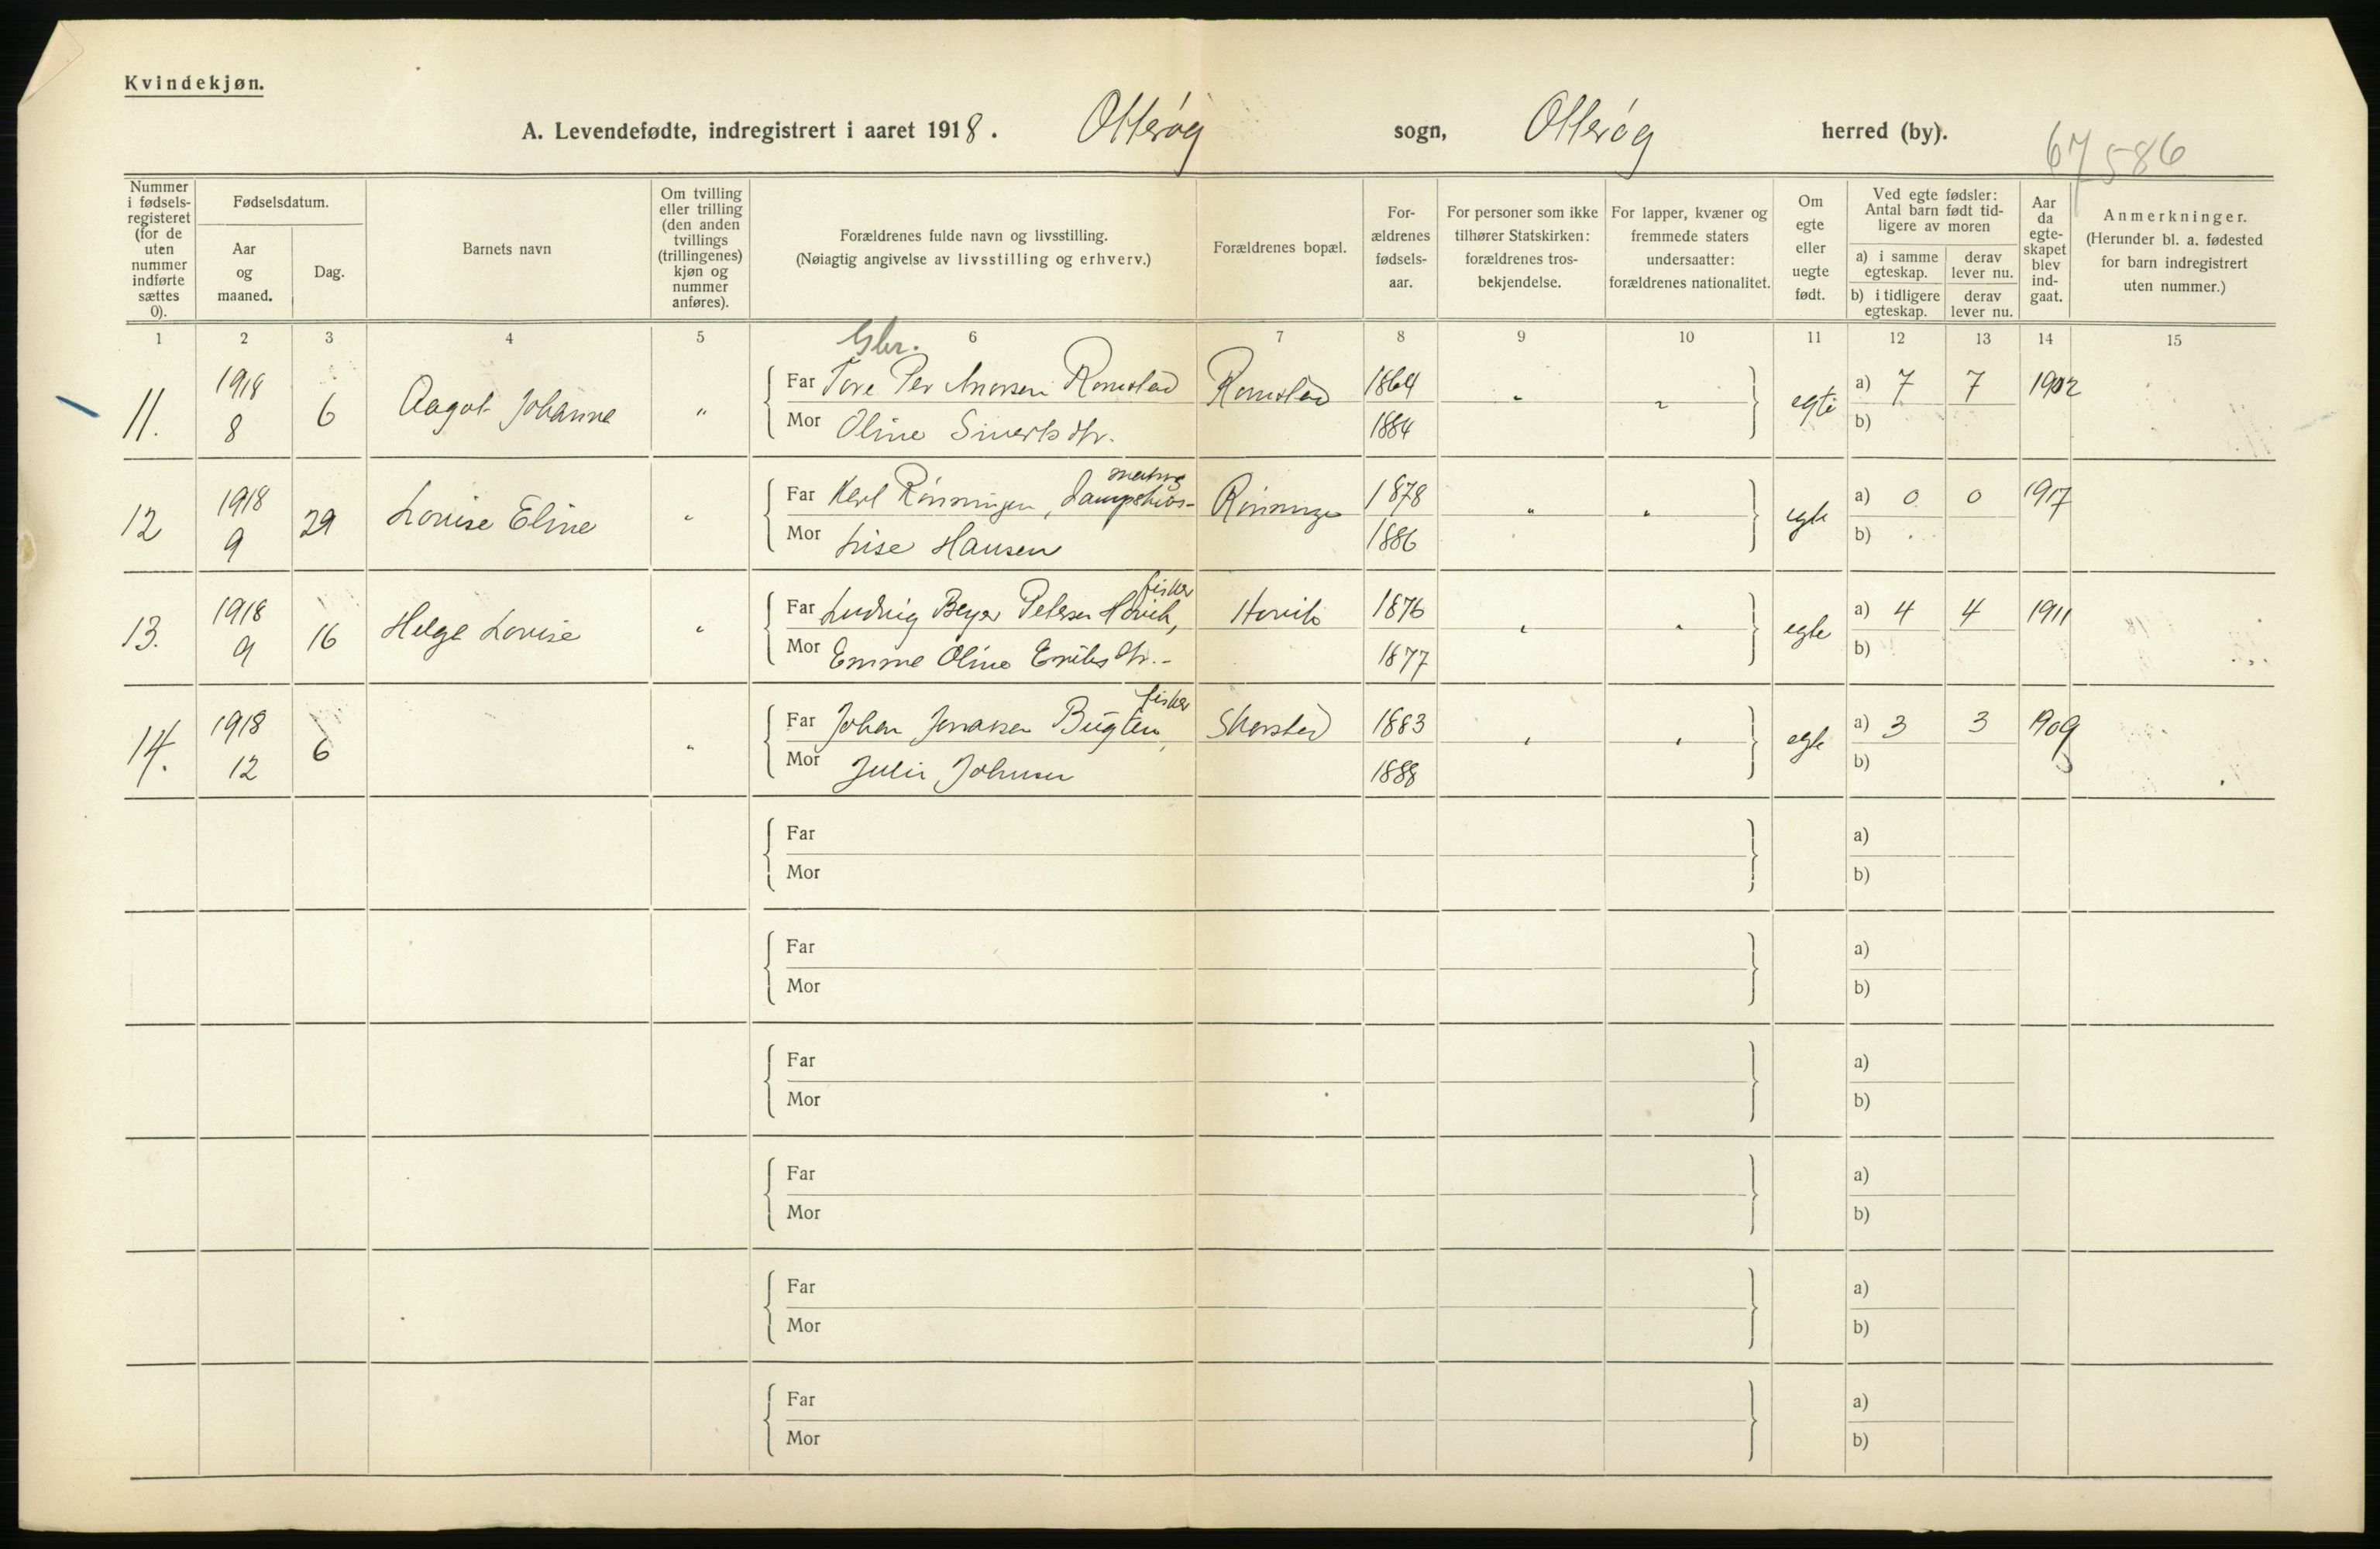 Kvindekjøn.
A. Levendefødte, indregistrert i aaret 1918. Otterøy sogn, Otterøy herred (by).
67586
Nummer i fødselsregisteret (for de uten nummer indførte sættes 0).
Fødselsdatum.
Aar og maaned.
Dag.
Barnets navn
Om tvilling eller trilling (den anden tvillings (trillingenes) kjøn og nummer anføres).
Forældrenes fulde navn og livsstilling.
(Nøiagtig angivelse av livsstilling og erhverv.)
Forældrenes bopæl.
For-ældrenes fødsels-aar.
For personer som ikke tilhører Statskirken: forældrenes tros-bekjendelse.
For lapper, kvæner og fremmede staters undersaatter: forældrenes nationalitet.
Om egte eller uegte født.
Ved egte fødsler: Antal barn født tid-ligere av moren
a) i samme egteskap.
derav lever nu.
b) i tidligere egteskap.
derav lever nu.
Aar da egte-skapet blev ind-gaat.
Anmerkninger.
(Herunder bl. a. fødested for barn indregistrert uten nummer.)
1 2 3 4 5 6 7 8 9 10 11 12 13 14 15
Gbr.
11. 1918 8 6 Aagot Johanne "
Far Tore Per Romstad Romstad 1864 " " egte a) 7 7 1902
Mor Oline Siverts dtr. 1884 b)
12 1918 9 29 Louise Eline "
matros
Far Karl Rønningen, Dampskibs- Rønningen 1878 " " egte a) 0 0 1917
Mor Lise Hansen 1886 b)
13. 1918 9 16 Helga Lovise "
fisker
Far Ludvig Beyer Petersen Hovik, Hovik 1876 " " egte a) 4 4 1911
Mor Emma Oline Eriks dtr.- 1877 b)
14. 1918 12 6 "
fisker
Far Johan Jonassen Bugten, Skorstad 1883 " " egte a) 3 3 1909
Mor Julie Johnsen 1888 b)
Far a)
Mor b)
Far a)
Mor b)
Far a)
Mor b)
Far a)
Mor b)
Far a)
Mor b)
Far a)
Mor b)